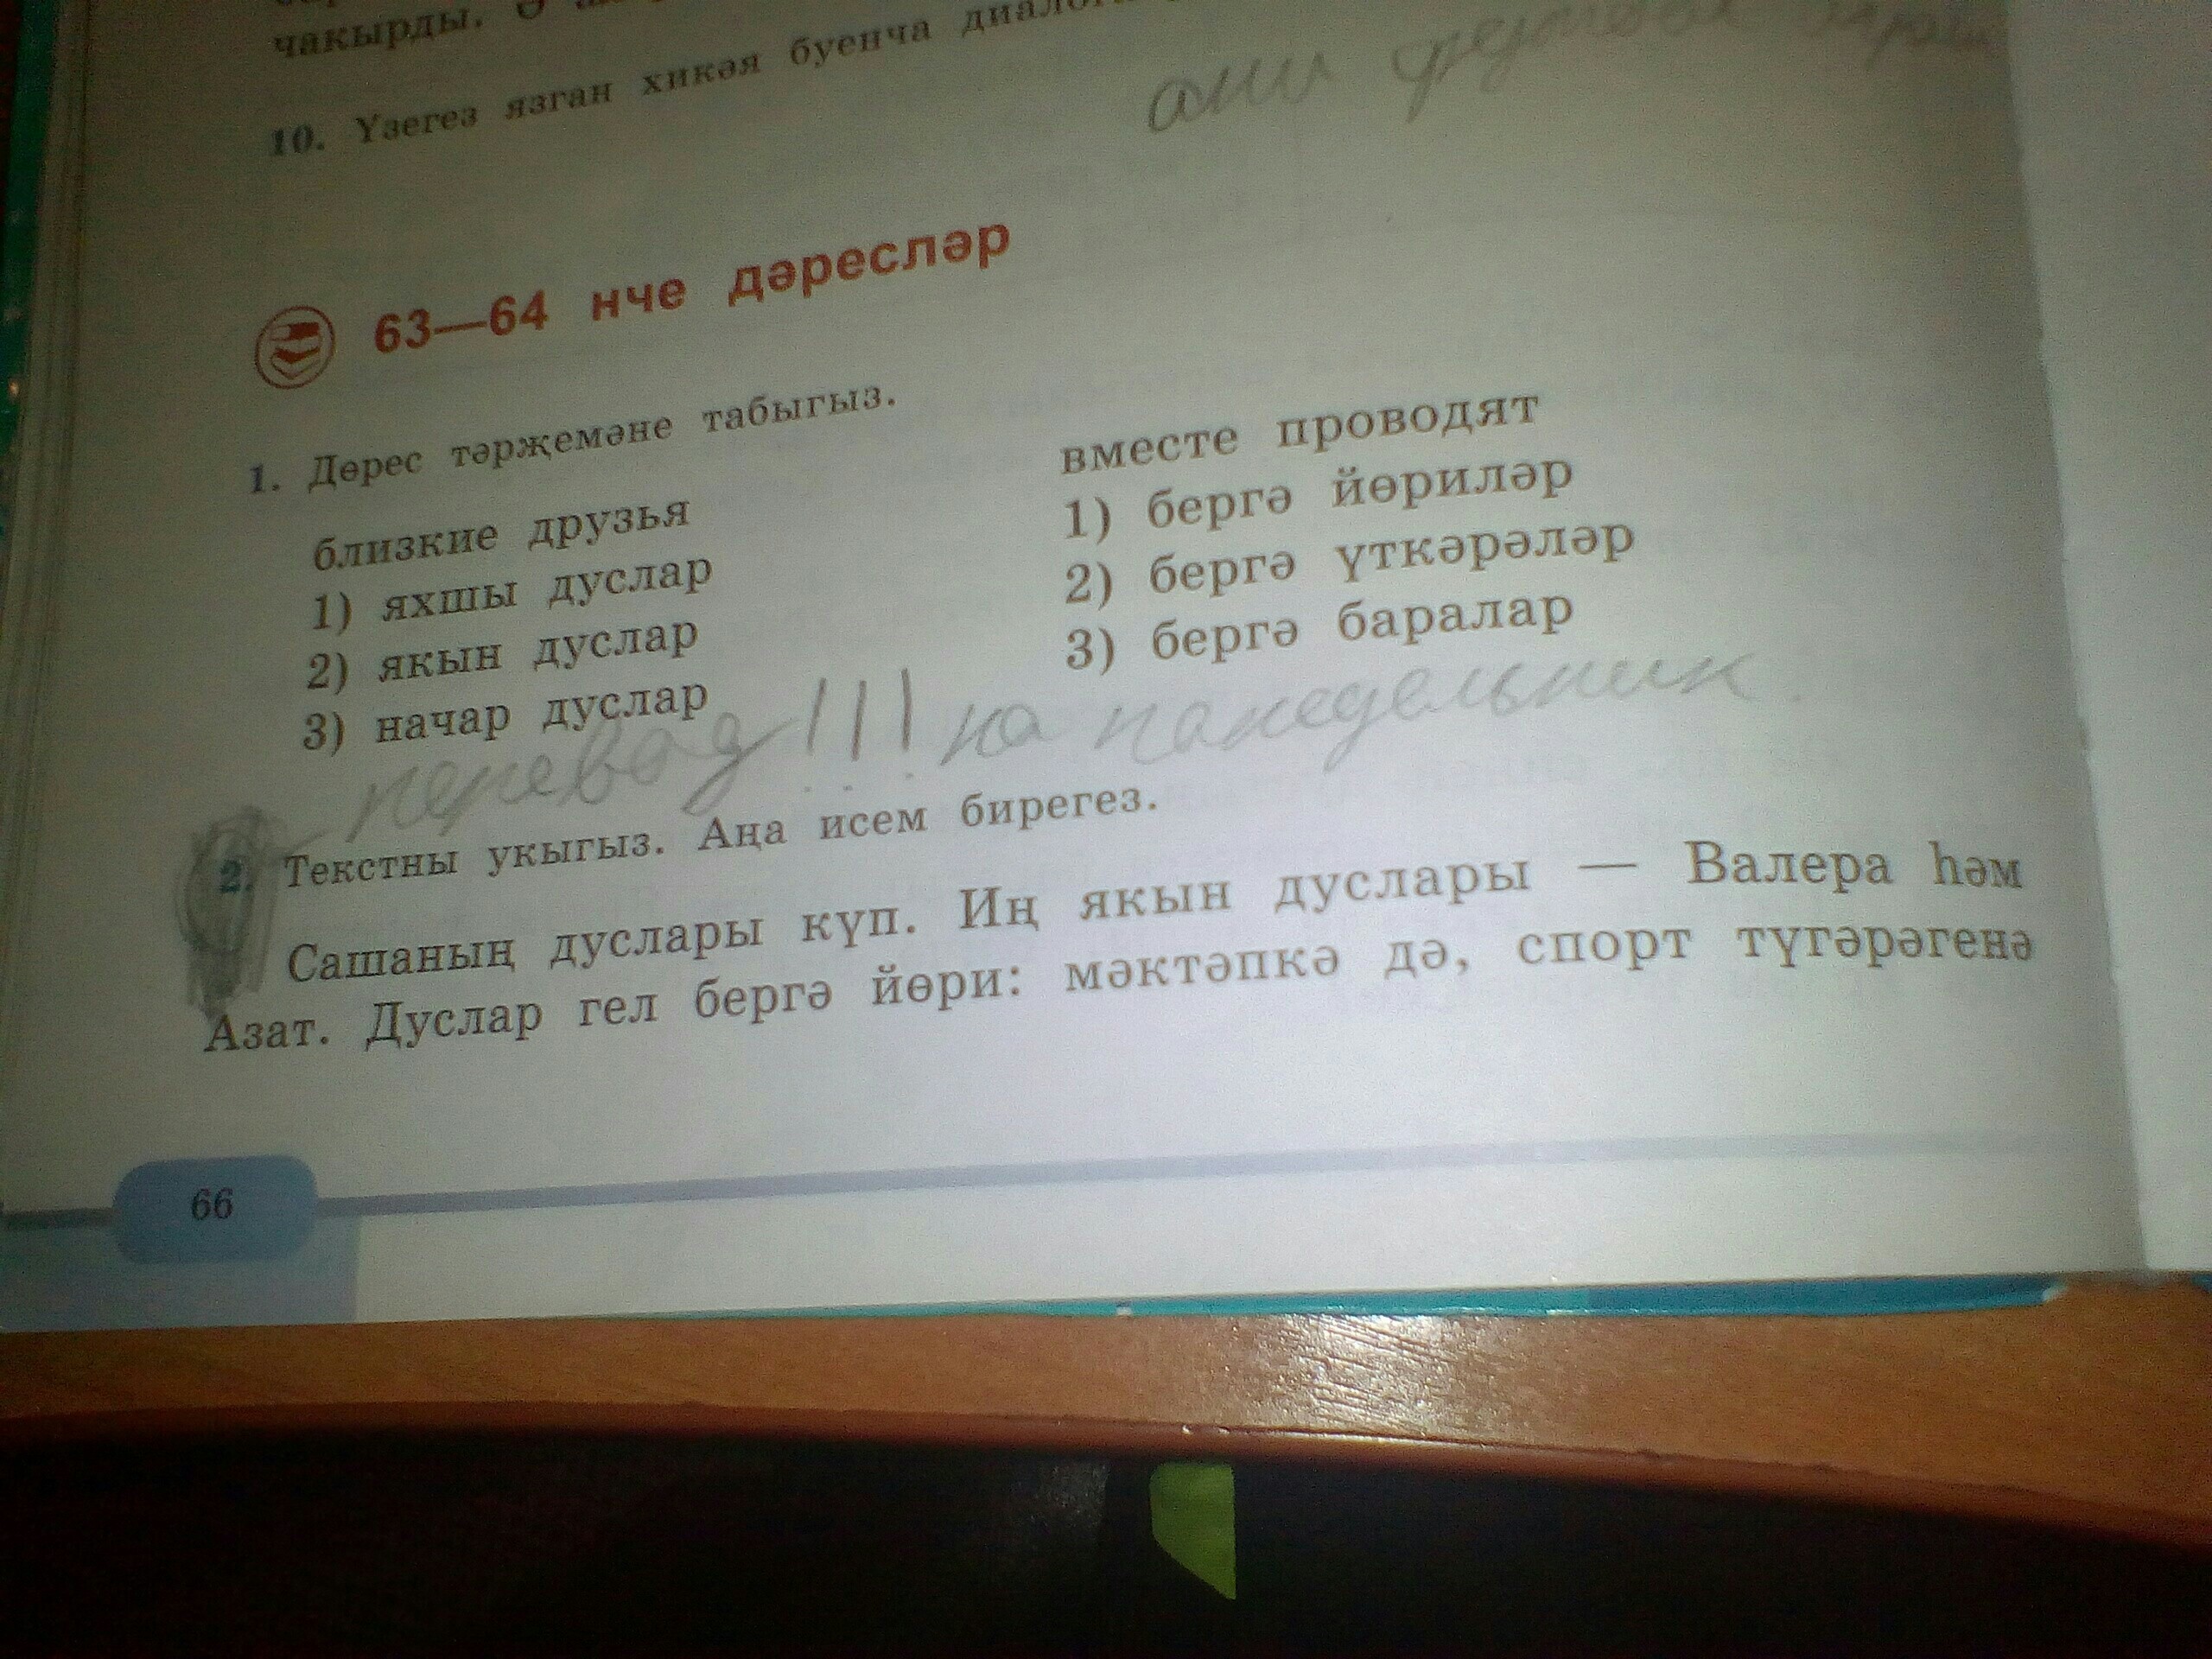 чакырды. Ә
10. Үзегез язган хикәя буенча
63—64 нче дәресләр
1. Дөрес тәрҗемәне табыгыз.
близкие друзья
1) яхшы дуслар
2) якын дуслар
3) начар дуслар
вместе проводят
1) бергә йөриләр
2) бергә үткәрәләр
3) бергә баралар
перевод!!! на панедельник.
2. Текстны укыгыз. Аңа исем бирегез.
Сашаның дуслары күп. Иң якын дуслары — Валера һәм
Азат. Дуслар гел бергә йөри: мәктәпкә дә, спорт түгәрәгенә
66